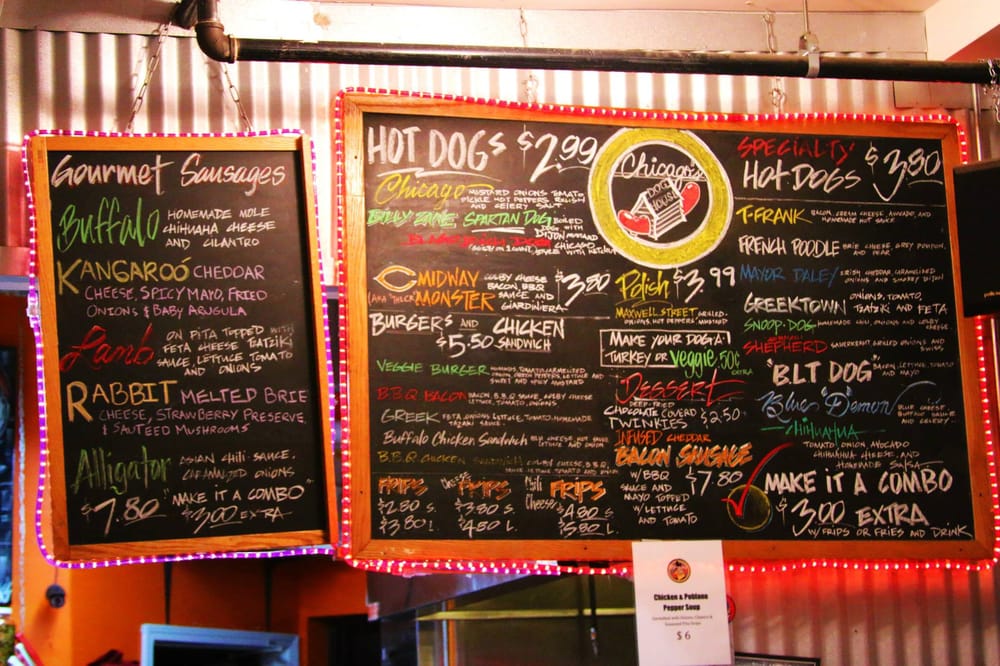 Gourmet Sausages
Buffalo HOMEMADE MOLE
CHIHUAHA CHEESE
AND CILANTRO
KANGAROO CHEDDAR
CHEESE, SPICY MAYO, FRIED
ONIONS & BABY ARUGULA
Lamb ON PITA TOPPED WITH
FETA CHEESE TZATZIKI
SAUCE, LETTUCE TOMATO
AND ONIONS
RABBIT MELTED BRIE
CHEESE, STRAWBERRY PRESERVE
& SAUTEED MUSHROOMS
Alligator ASIAN CHILI SAUCE,
CARAMALIZED ONIONS
$7.80 "MAKE IT A COMBO"
$3.00 EXTRA
HOT DOGS $2.99
Chicago MUSTARD ONIONS TOMATO
PICKLE HOT PEPPERS RELISH
AND CELERY SALT
BILLY ZANE SPARTAN DOG BOILED
DOG WITH
DIJON MUSTARD
CHICAGO
STYLE WITH KETCHUP
MIDWAY
(AKA "THE C") MONSTER
COLBY CHEESE
BACON, BBQ
SAUCE AND
GIARDINIERA
$3.80
BURGERS AND CHICKEN
$5.50 SANDWICH
VEGGIE BURGER
LETTUCE AND
SWEET AND SPICY MUSTARD
B.B.Q BACON BACON, B.B.Q SAUCE, COLBY CHEESE
LETTUCE, TOMATO, ONIONS
GREEK FETA, ONIONS, LETTUCE, TOMATO, HOMEMADE
SAUCE
Buffalo Chicken Sandwich BLU CHEESE, HOT SAUCE
LETTUCE AND ONION
B.B.Q CHICKEN SANDWICH COLBY CHEESE, B.B.Q,
SAUCE LETTUCE TOMATO AND ONION
FRIPS
$2.80 S.
$3.80 L.
Cheese FRIPS
$3.80 S.
$4.80 L.
Chili
Cheese FRIPS
$4.80 S.
$5.80 L.
Chicago's
DOG
HOUSE
Polish $3.99
MAXWELL STREET GRILLED
ONIONS, HOT PEPPERS, MUSTARD
MAKE YOUR DOG A:
TURKEY OR Veggie .50¢
EXTRA
DESSERT
DEEP-FRIED
CHOCOLATE COVERD $2.50
TWINKIES
INFUSED CHEDDAR
BACON SAUSAGE
W/BBQ $7.80
SAUCE AND
MAYO TOPPED
W/LETTUCE
AND TOMATO
SPECIALTY
HOT DOGS $3.80
T-FRANK BACON, CREAM CHEESE, AVOCADO, AND
HOMEMADE HOT SAUCE
FRENCH POODLE BRIE CHEESE, GREY POUPON,
AND PEAR
MAYOR DALEY IRISH CHEDDAR, CARMELIZED
ONIONS AND SMOKEY DIJON
GREEKTOWN ONIONS, TOMATO,
TZATZIKI AND FETA
SNOOP-DOG HOMEMADE CHILI, ONIONS AND COLBY
CHEESE
GERMAN
SHEPHERD SAUERKRAUT GRILLED ONIONS AND
SWISS
"B.L.T DOG" BACON, LETTUCE, TOMATO
AND MAYO
"Blue Demon" BLUE CHEESE,
BUFFALO SAUCE
AND CELERY
CHIHUAHUA
TOMATO ONION AVOCADO
CHIHUAHUA CHEESE, AND
HOMEMADE SALSA
MAKE IT A COMBO
$3.00 EXTRA
W/FRIPS OR FRIES AND DRINK
Chicken & Poblano
Pepper Soup
$6